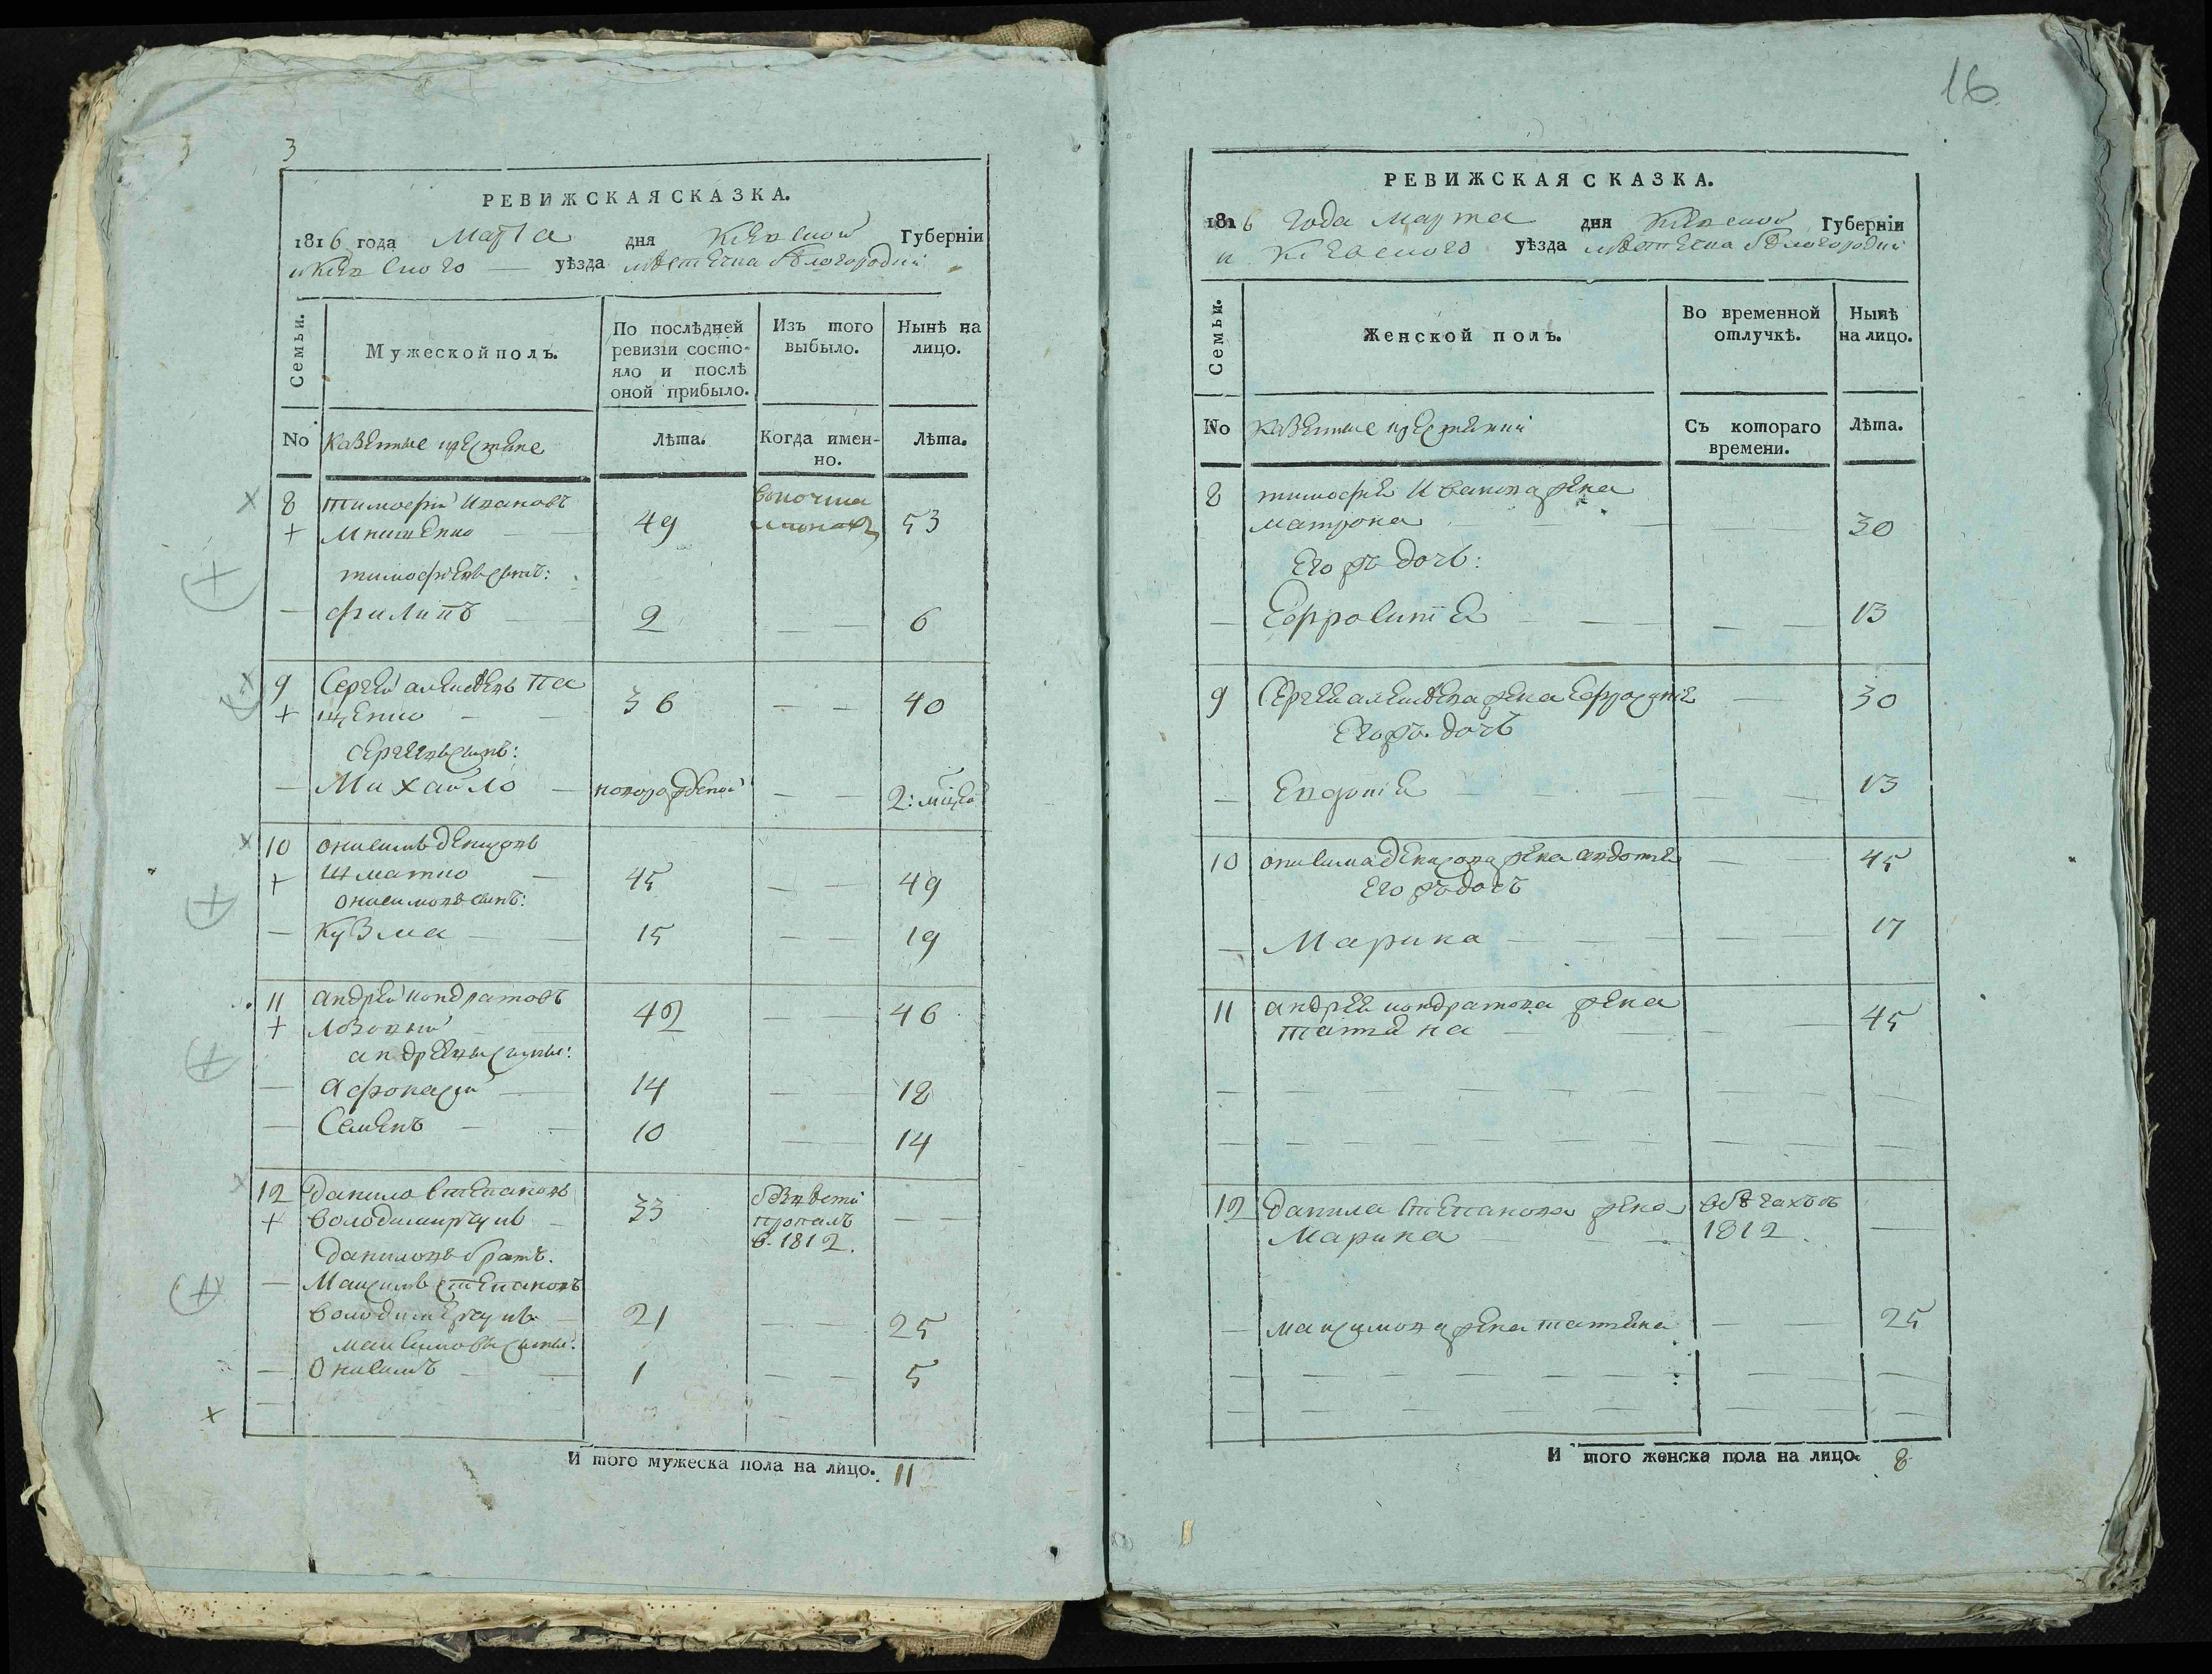 3
РЕВИЖСКАЯ СКАЗКА.
1816 года Марта дня Кіевской Губерніи
и Кіевского уѣзда мѣстечка бѣлогородки
Семьи.
Мужеской полъ.
По послѣдней ревизіи состо-
яло и послѣ
оной прибыло.
Изъ того
выбыло.
Нынѣ на
лицо.
No
казенные крестяне
Лѣта.
Когда имен-
но.
Лѣта.
8 тимофей Ивановъ
49 53
тимофѣевъ сынъ:
филипъ 2 6
9 Сергей алексѣевъ Па
щенко 36 40
сергеевъ сынъ:
Михайло новорожденой 2: мцей
10 онисимъ денисовъ
Шматко 45 49
онисимовъ сынъ:
Кузма 15 19
11 андрей кондратовъ
Лозовый 42 46
андреевы сыны:
Афонасий 14 18
Семенъ 10 14
12 Данило степановъ 33 безвѣсти
володимирчукъ пропалъ
Даниловъ братъ. в. 1812.
Максимъ степановъ
володимерчукъ 21 25
максимовы сыны:
Онисимъ 1 5
И того мужеска пола на лицо. 11
16
РЕВИЖСКАЯ СКАЗКА.
1816 года марта дня Кіевской Губерніи
и Кіевского уѣзда мѣстечка бѣлогородки
Семьи.
Женской полъ.
Во временной
отлучкѣ.
Нынѣ
на лицо.
No
казенные крестянки
Съ котораго
времени.
Лѣта.
8 тимофея Иванова жена
матрона 30
Его жъ дочь:
Ефросиния 13
9 Сергея алексѣева жена Ефросиния 30
Его жъ дочъ
Евдокия 13
10 онисима денисова жена авдотия 45
Его жъ дочъ
Марина 17
11 андрея кондратова жена
татяна 45
12 Данила степанова жена въ бѣгахъ въ
Марина 1812.
максимова жена татяна 25
И того женска пола на лицо. 8